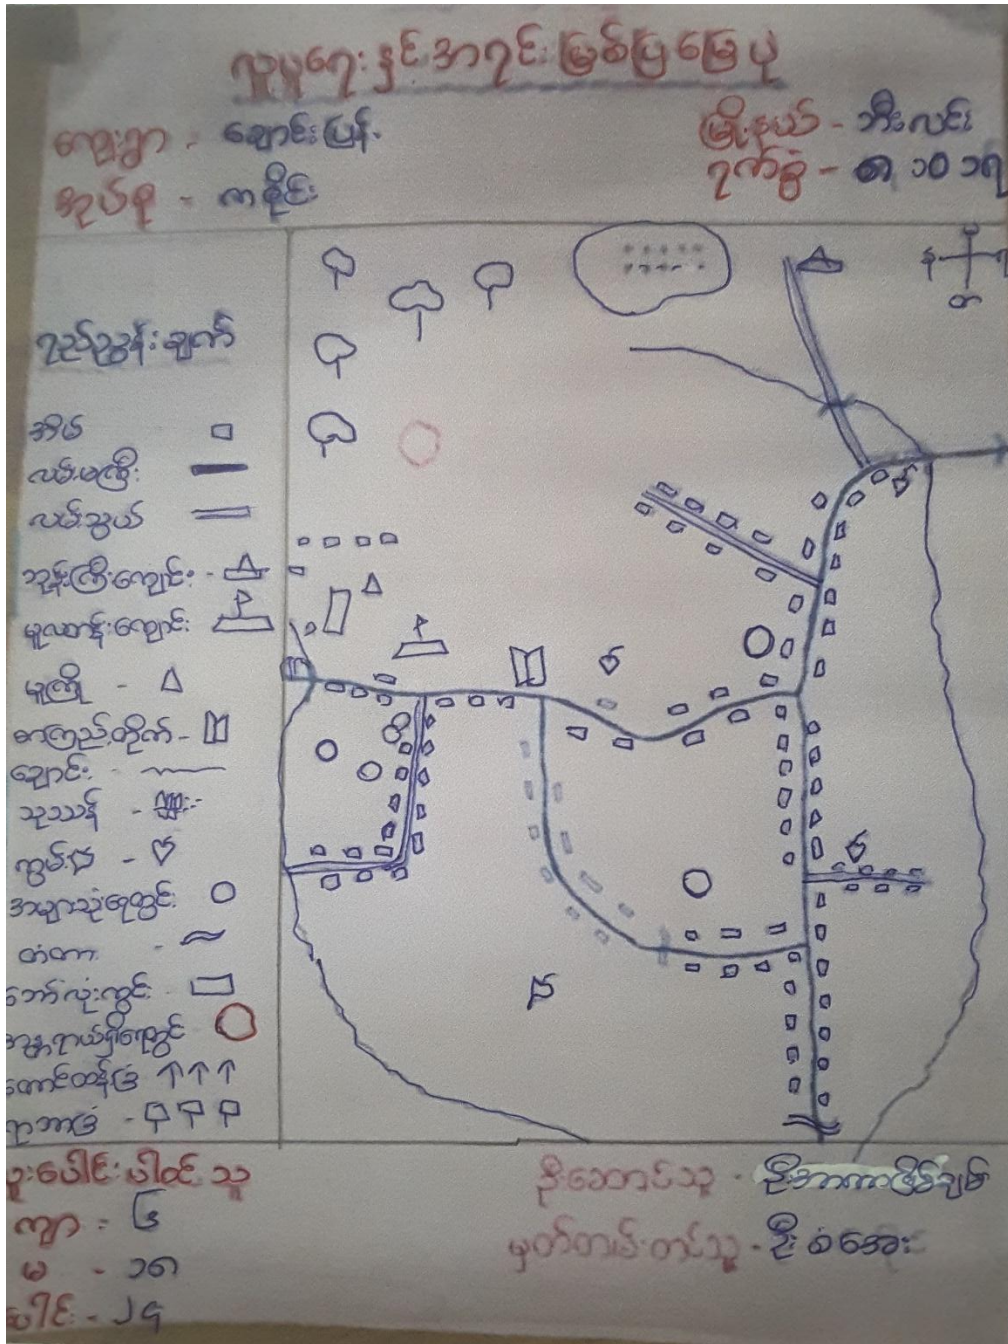 လူမှုရေးနှင့်အရင်းမြစ်ပြမြေပုံ
ကျေးရွာ - ချောင်းပြန်
မြို့နယ် - ဘီးလင်း
အုပ်စု - ကစိုင်း
ရက်စွဲ -
ရည်ညွှန်းချက်
အိမ်
လမ်းမကြီး
လမ်းသွယ်
ဘုန်းကြီးကျောင်း -
မူလတန်းကျောင်း
မူကြို -
စာကြည့်တိုက် -
ချောင်း -
သုဿန် -
ကွမ်းခြံ -
အများသုံးရေတွင်း
တံတား -
ဘောလုံးကွင်း -
အန္တရာယ်ရှိရေတွင်း
တောင်တန်း
ရာဘာခြံ -
ပူးပေါင်းပါဝင်သူ
ကျား - ၆
မ - ၁၈
ပေါင်း - ၂၄
ဦးဆောင်သူ -
မှတ်တမ်းတင်သူ - ဦးစံအေး